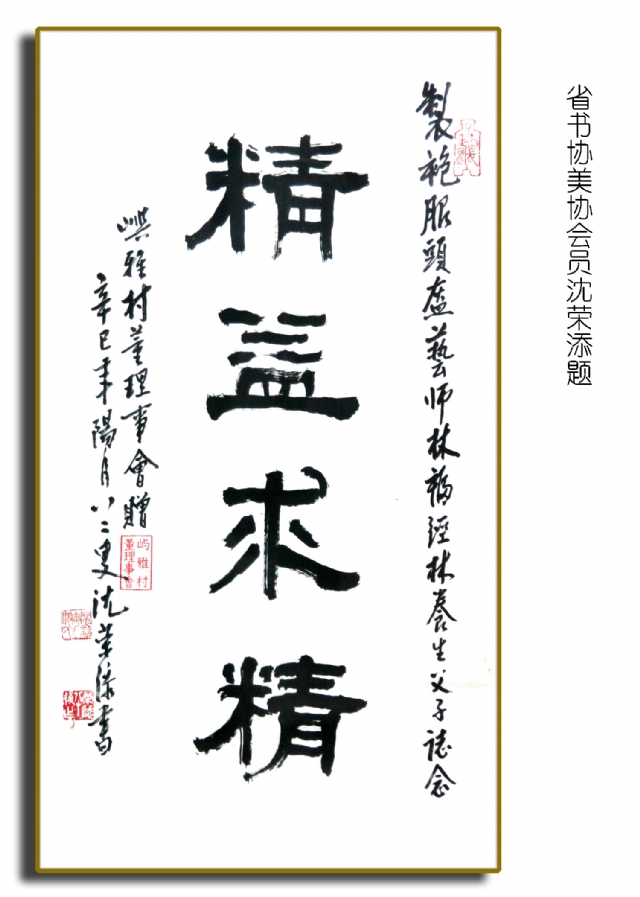 省书协美协会员沈荣添题
製袍服頭盔藝师林福经林養生父子誌念
精益求精
嶼雅村董理事會贈
屿雅村董理事會
辛巳年陽月八二叟沈荣添書